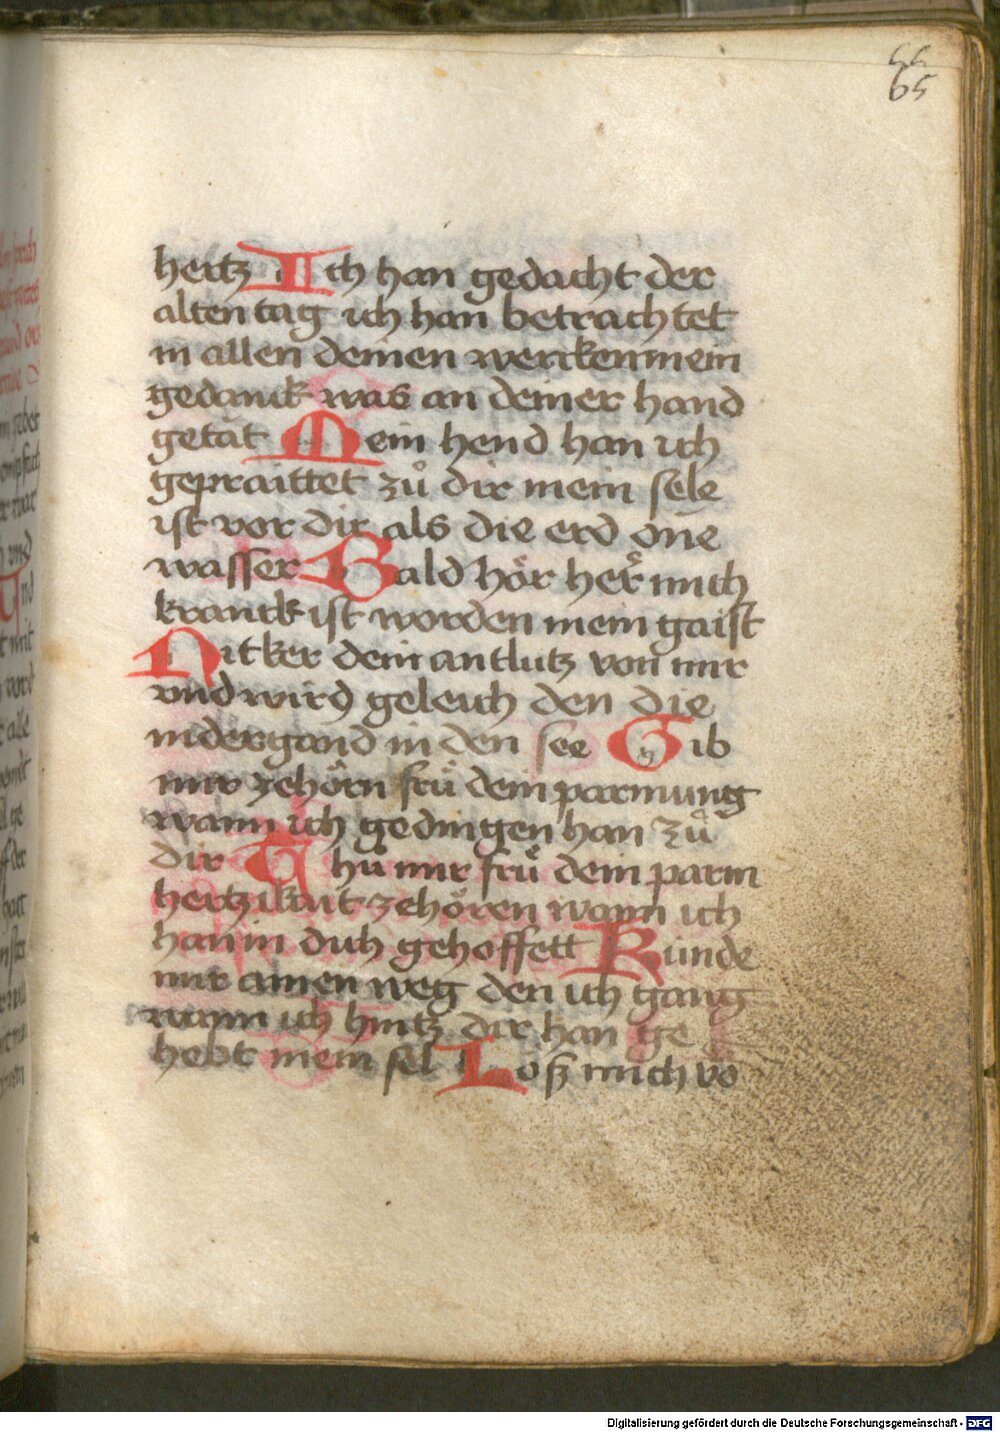 66
65
hertz Ich han gedacht der
alten tag ich han betrachtet
in allen deinen wercken mein
gedanck was an deiner hand
getăt Mein hend han ich
gepraittet zů dir mein sele
ist vor dir als die erd one
wasser Bald hör her mich
kranck ist worden mein gaist
Nit ker dein antlutz von mir
vnd wird geleich den die
nidergand in den see Gib
mir zehörn frů dein parmung
wann ich gedingen han zů
dir Thů mir frů dein parm
hertzikait zehören wann ich
han in dich gehoffett Kunde
mir ainen weg den ich gang
wann ich hintz dir han ge
hebt mein sel Losz mich vo
Digitalisierung gefördert durch die Deutsche Forschungsgemeinschaft - DFG